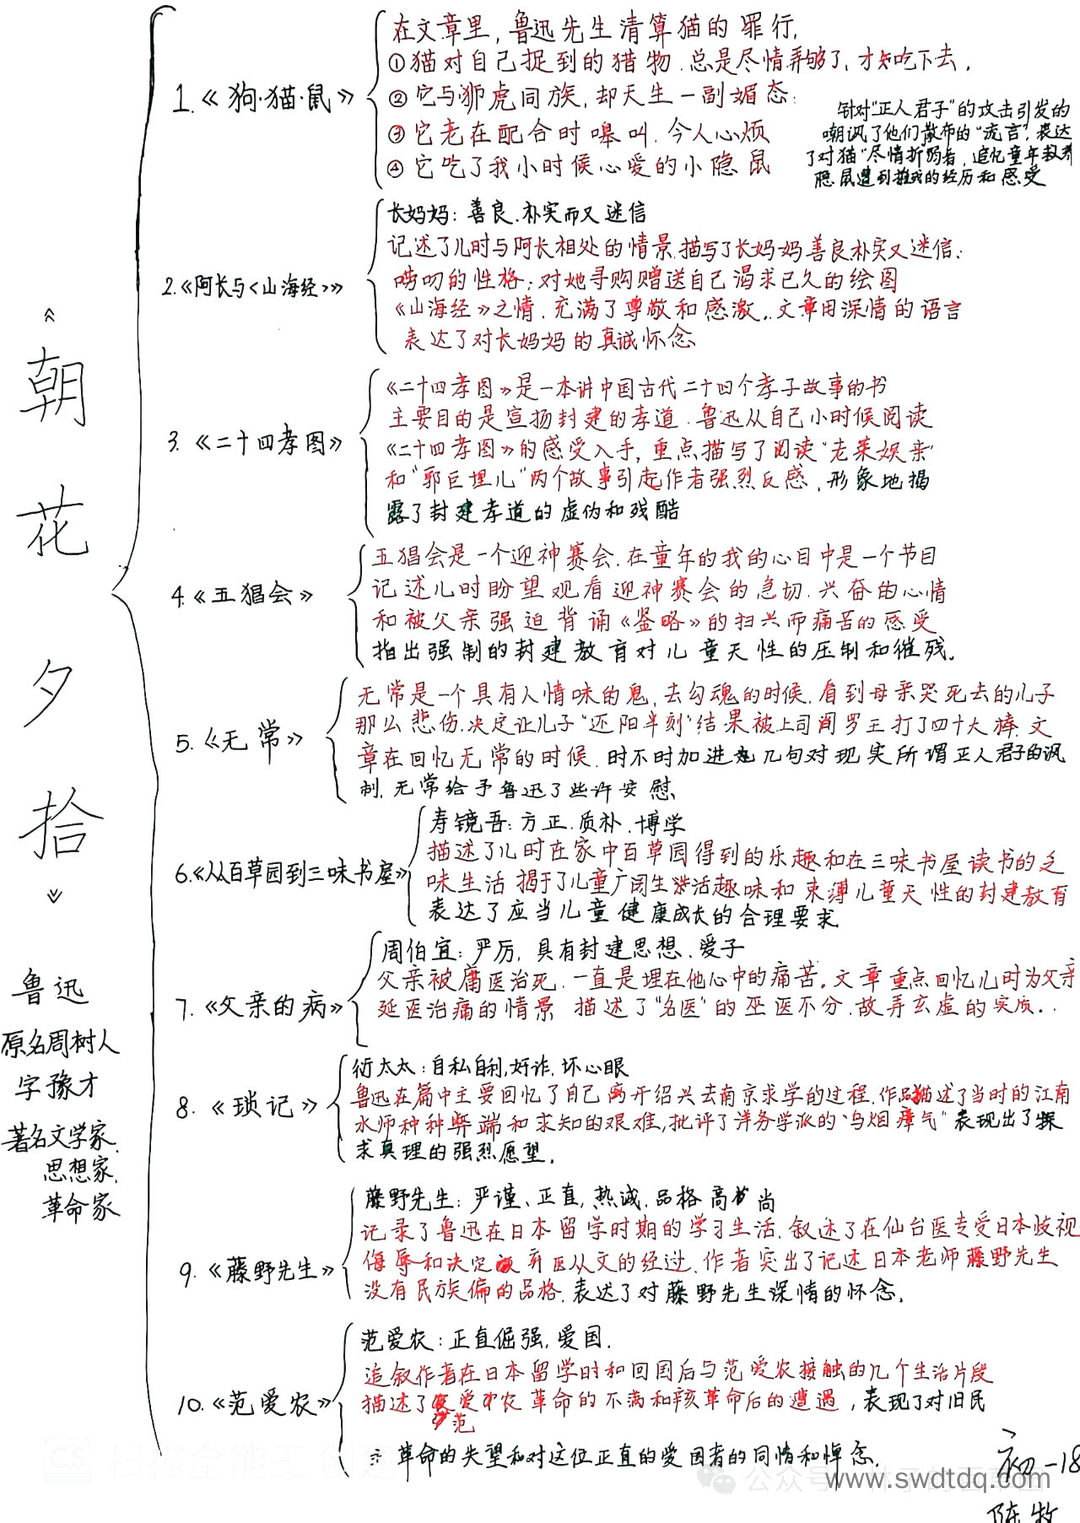 《朝花夕拾》
鲁迅
原名周树人
字豫才
著名文学家、
思想家、
革命家
1.《狗·猫·鼠》
在文章里，鲁迅先生清算猫的罪行，
①猫对自己捉到的猎物，总是尽情弄够了，才吃下去，
②它与狮虎同族，却天生一副媚态；
③它老在配合时嗥叫，令人心烦
④它吃了我小时候心爱的小隐鼠
针对“正人君子”的攻击引发的
嘲讽了他们散布的“流言”，表达
了对猫“尽情折
者，追忆童年救养
隐鼠遭到
的经历和感受
2.《阿长与<山海经>》
长妈妈：善良、朴实而又迷信
记述了儿时与阿长相处的情景，描写了长妈妈善良朴实又迷信、
唠叨的性格；对她寻购赠送自己渴求已久的绘图
《山海经》之情，充满了尊敬和感激。文章用深情的语言
表达了对长妈妈的真诚怀念
3.《二十四孝图》
《二十四孝图》是一本讲中国古代二十四个孝子故事的书
主要目的是宣扬封建的孝道，鲁迅从自己小时候阅读
《二十四孝图》的感受入手，重点描写了阅读“老莱娱亲”
和“郭巨埋儿”两个故事引起作者强烈反感，形象地揭
露了封建孝道的虚伪和残酷
4.《五猖会》
五猖会是一个迎神赛会，在童年的我的心目中是一个节目
记述儿时盼望观看迎神赛会的急切、兴奋的心情
和被父亲强迫背诵《鉴略》的扫兴而痛苦的感受
指出强制的封建教育对儿童天性的压制和摧残。
5.《无常》
无常是一个具有人情味的鬼，去勾魂的时候，看到母亲哭死去的儿子
那么悲伤，决定让儿子“还阳半刻”结果被上司阎罗王打了四十大棒，文
章在回忆无常的时候，时不时加进几句对现实所谓正人君子的讽
刺，无常给予鲁迅了些许安慰、
6.《从百草园到三味书屋》
寿镜吾：方正、质朴、博学
描述了儿时在家中百草园得到的乐趣和在三味书屋读书的乏
味生活，揭于了儿童广阔生活趣味和束缚儿童天性的封建教育
表达了应当儿童健康成长的合理要求
7.《父亲的病》
周伯宜：严厉，具有封建思想、爱子
父亲被庸医治死，一直是埋在他心中的痛苦，文章重点回忆儿时为父亲
延医治病的情景，描述了“名医”的巫医不分、故弄玄虚的实质..
8.《琐记》
衍太太：自私自利，奸诈、坏心眼
鲁迅在篇中主要回忆了自己离开绍兴去南京求学的过程，作品描述了当时的江南
水师种种弊端和求知的艰难，批评了洋务学派的“乌烟瘴气”表现出了探
求真理的强烈愿望。
9.《藤野先生》
藤野先生：严谨、正直，热诚、品格高尚
记录了鲁迅在日本留学时期的学习生活，叙述了在仙台医专受日本歧视
侮辱和决定弃医从文的经过，作者突出了记述日本老师藤野先生
没有民族偏的品格，表达了对藤野先生深情的怀念。
10.《范爱农》
范爱农：正直倔强，爱国，
追叙作者在日本留学时和回国后与范爱农接触的几个生活片段
描述了范爱农革命的不满和
革命后的遭遇，表现了对旧民
主革命的失望和对这位正直的爱国者的同情和悼念。
初一18
陈牧
www.swdtdq.com